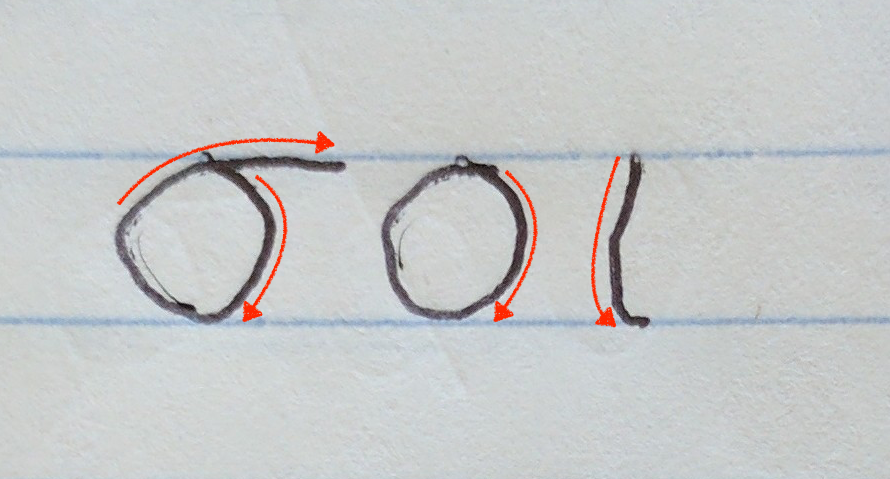 σ ο ι